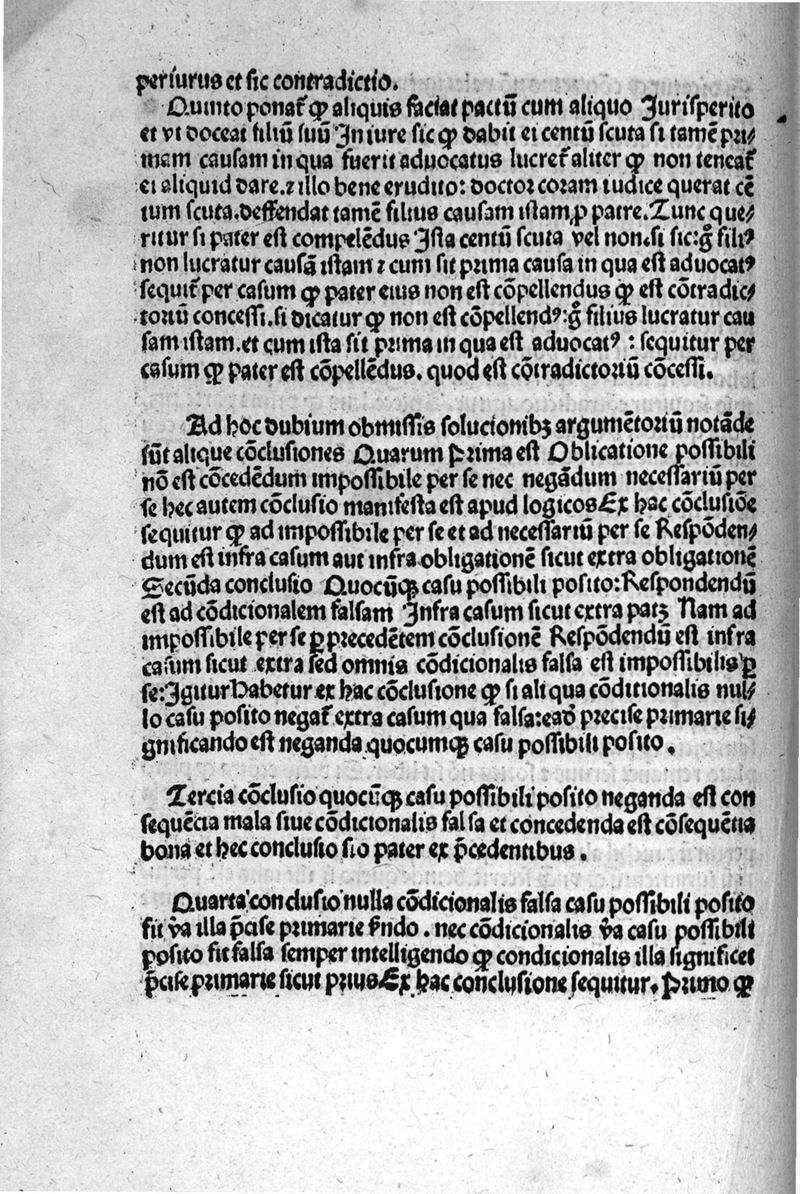 periurus et sic contradictio.
Quinto ponat̃ ꝙ aliquis faciat pactũ cum aliquo Jurisperito
et vt doceat filiũ suũ In iure sic ꝙ dabit ei centũ scuta si tamẽ pri⸗
mam causam in qua fuerit aduocatus lucret̃ aliter ꝙ non teneat̃
ei aliquid dare. ⁊ illo bene erudito: doctor coram iudice querat cẽ
tum scuta. deffendat tamẽ filius causam istam ꝓ patre. Tunc que⸗
ritur si pater est compelẽdus Ista centũ scuta vel non. si sic: g̊ filiꝰ
non lucratur causã istam ⁊ cum sit prima causa in qua est aduocatꝰ
sequit̃ per casum ꝙ pater eius non est cõpellendus ꝙ est cõtradic⸗
toriũ concessi. si dicatur ꝙ non est cõpellendꝰ: g̊ filius lucratur cau
sam istam. et cum ista sit prima in qua est aduocatꝰ : sequitur per
casum ꝙ pater est cõpellẽdus. quod est cõtradictoriũ cõcessi.
Ad hoc dubium obmissis solucionibꝫ argumẽtoriũ notãde
sũt alique cõclusiones Quarum Prima est Oblicatione possibili
nõ est cõcedẽdum impossibile per se nec negãdum necessariũ per
se hec autem cõclusio manifesta est apud logicos Ex hac cõclusiõe
sequitur ꝙ ad impossibile per se et ad necessariũ per se Respõden⸗
dum est infra casum aut infra obligationẽ sicut extra obligationẽ
Secũda conclusio Quocũqꝫ casu possibili posito: Respondendũ
est ad cõdicionalem falsam Infra casum sicut extra patꝫ Nam ad
impossibile per se ꝑ precedẽtem cõclusionẽ Respõdendũ est infra
casum sicut extra sed omnis cõdicionalis falsa est impossibilis ꝑ
se: Igitur Habetur ex hac cõclusione ꝙ si aliqua cõditionalis nul⸗
lo casu posito negat̃ extra casum qua falsa: eadẽ precise primarie si⸗
gnificando est neganda quocumqꝫ casu possibili posito.
Tercia cõclusio quocũqꝫ casu possibili posito neganda est con
sequẽcia mala siue cõdicionalis falsa et concedenda est cõsequẽtia
bona et hec conclusio sio pater ex p̃cedentibus.
Quarta conclusio nulla cõdicionalis falsa casu possibili posito
fit v̾a illa p̃cise primarie s̾ndo. nec cõdicionalis v̾a casu possibili
posito fit falsa semper intelligendo ꝙ condicionalis illa significet
p̃cise primarie sicut prius Ex hac conclusione sequitur. Primo ꝙ